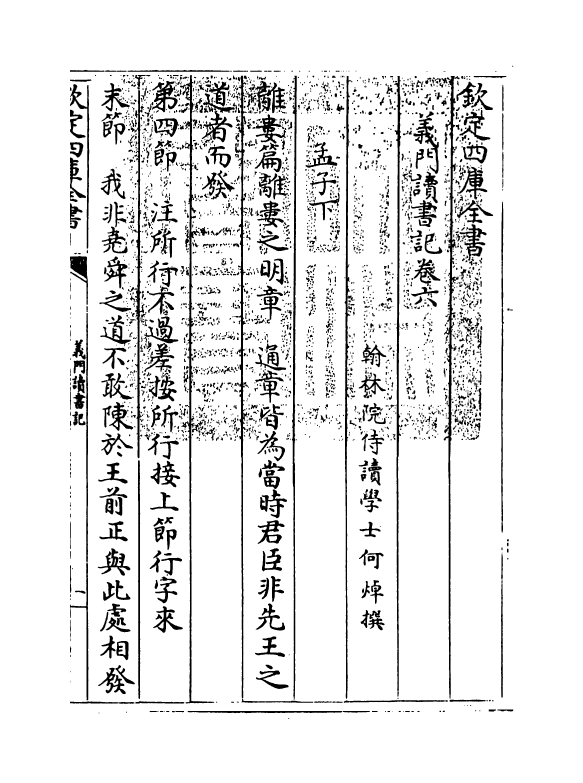 欽定四庫全書
義門讀書記卷六
翰林院侍讀學士何焯撰
孟子下
離婁篇離婁之明章　通章皆為當時君臣非先王之
道者而發
第四節　注所行不過差按所行接上節行字來
末節　我非堯舜之道不敢陳於王前正與此處相發
欽定四庫全書
義門讀書記
一